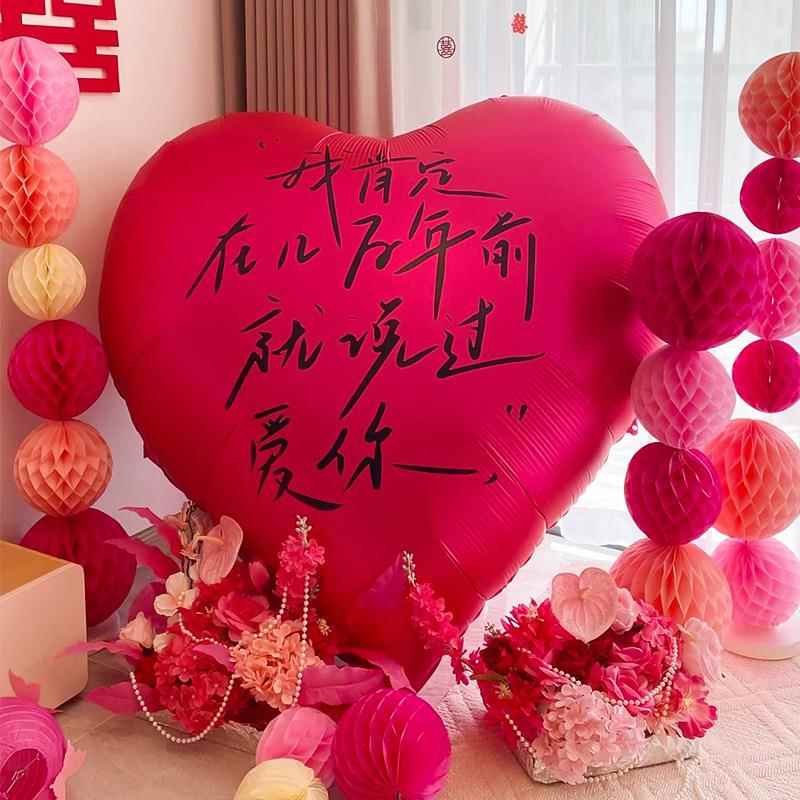 囍
囍
囍
我肯定
在几百年前
就说过
爱你,"